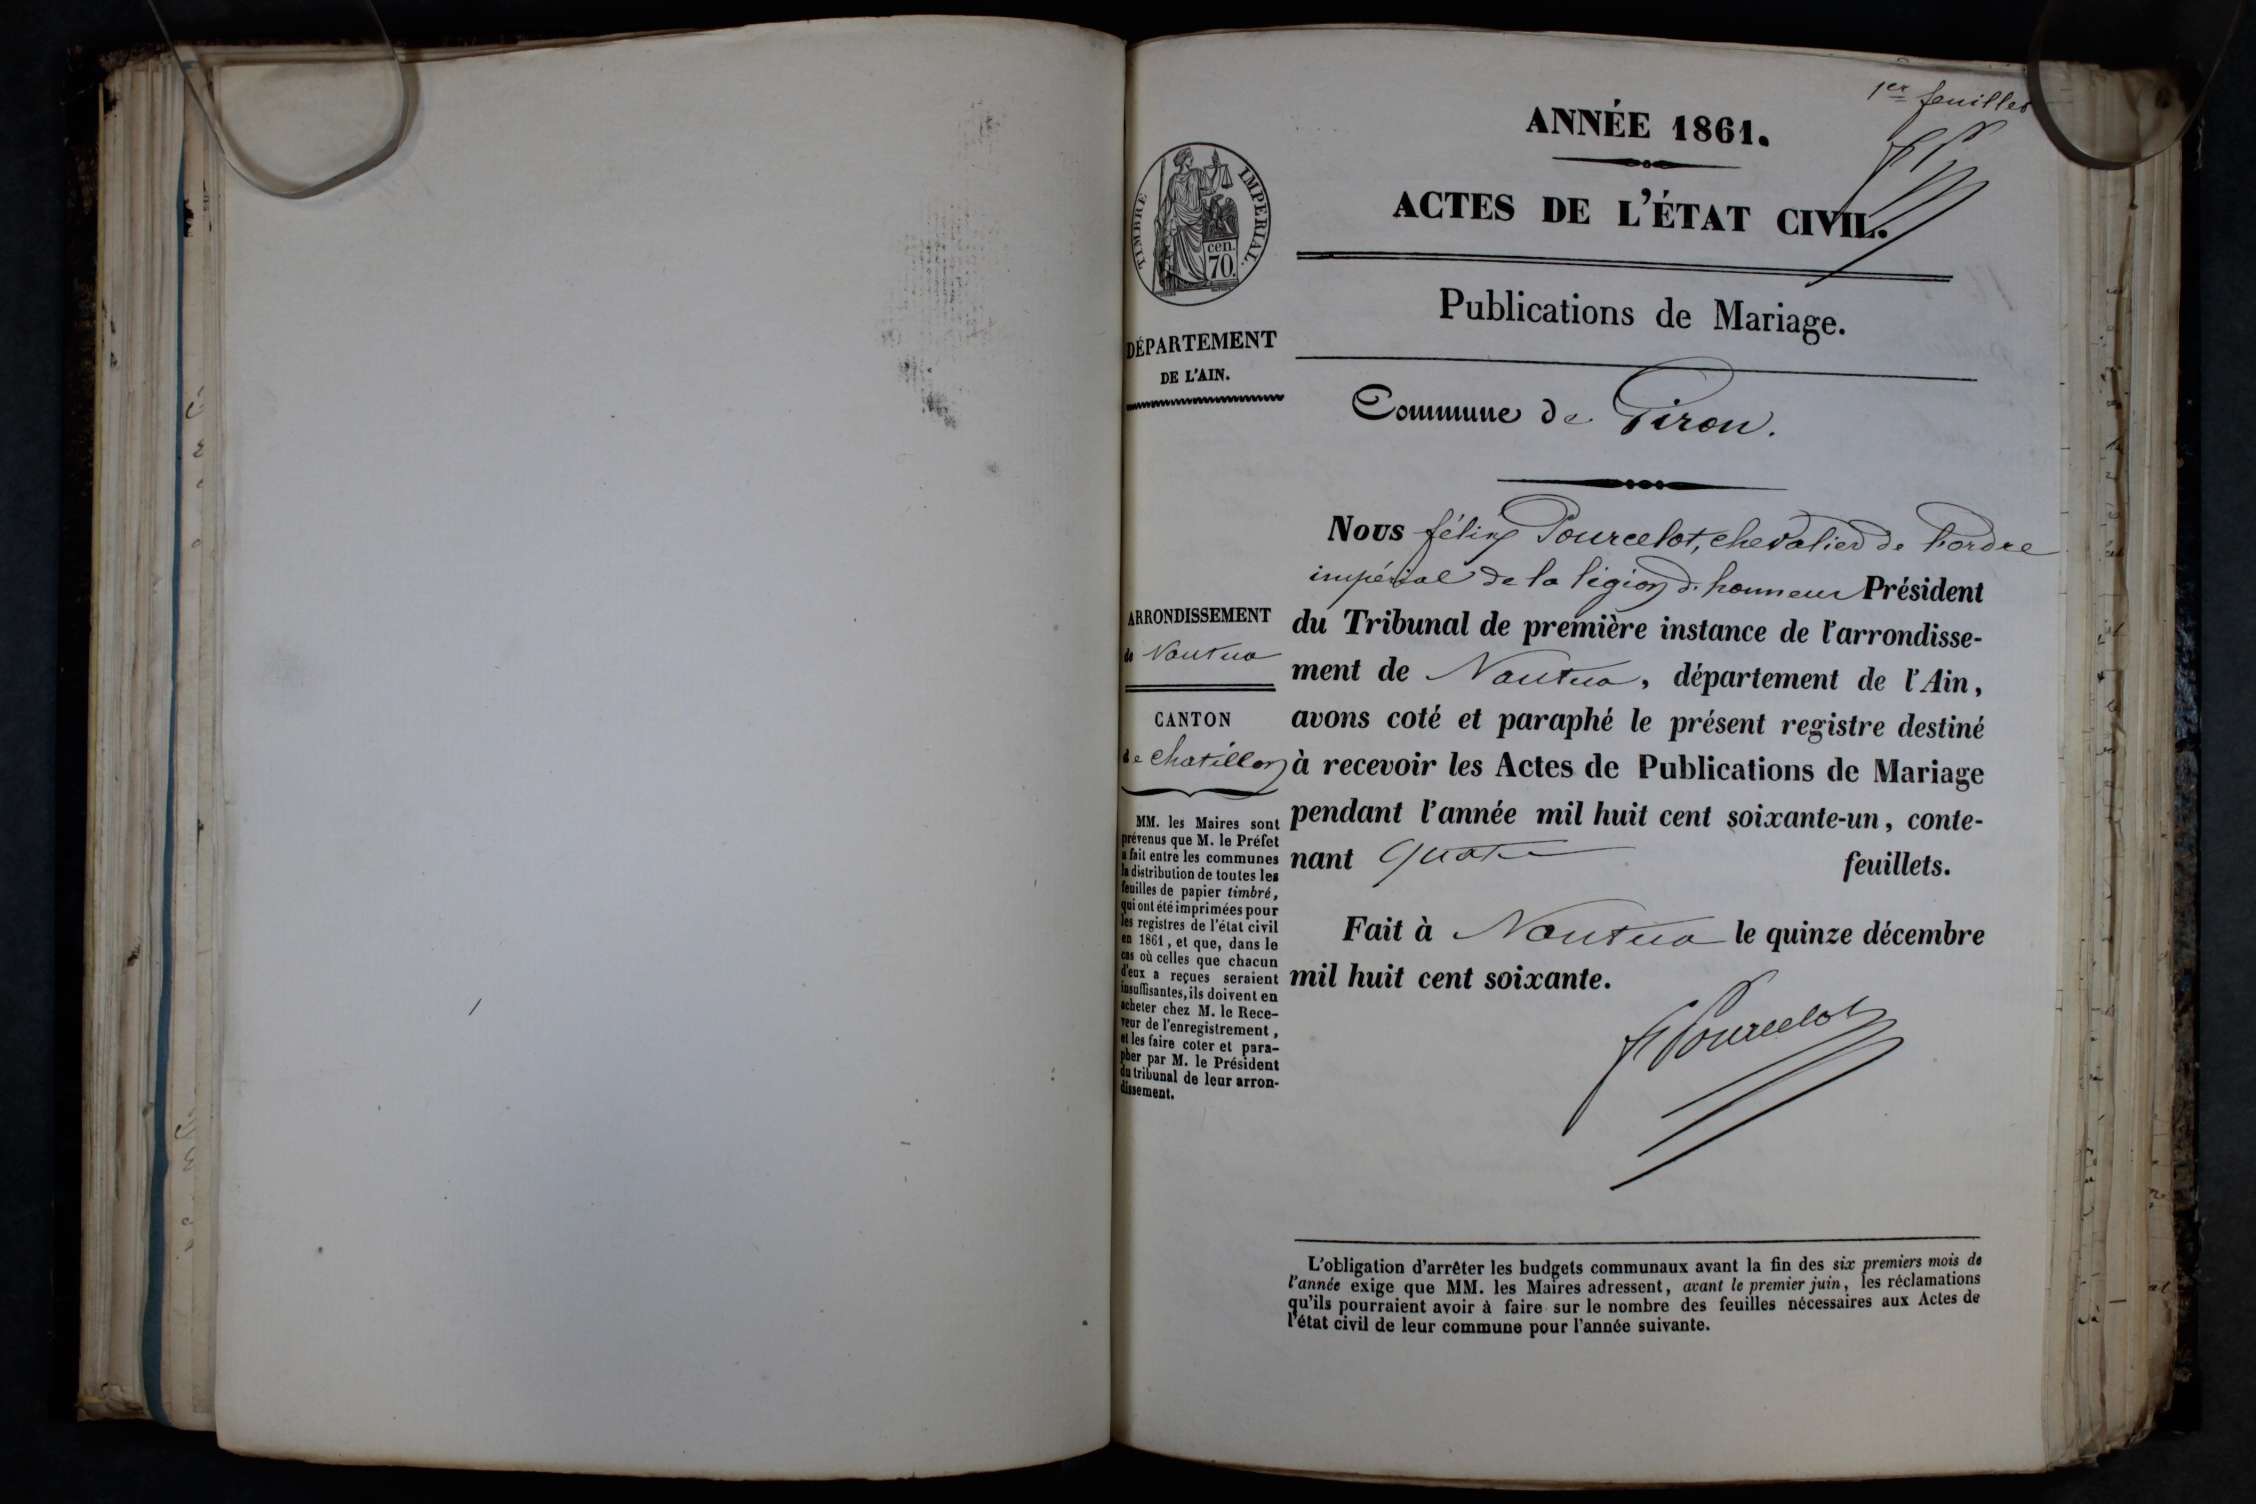 1er feuillet
ANNÉE 1861.
ACTES DE L'ÉTAT CIVIL.
TIMBRE IMPERIAL.
cen.
70.
Publications de Mariage.
DÉPARTEMENT
DE L'AIN.
Commune de Giron.
ARRONDISSEMENT
de Nantua
CANTON
de Chatillon
MM. les Maires sont
prévenus que M. le Préfet
a fait entre les communes
la distribution de toutes les
feuilles de papier timbré,
qui ont été imprimées pour
les registres de l'état civil
en 1861, et que, dans le
cas où celles que chacun
d'eux a reçues seraient
insuffisantes, ils doivent en
acheter chez M. le Rece-
veur de l'enregistrement,
et les faire coter et para-
pher par M. le Président
du tribunal de leur arron-
dissement.
Nous félix Pourcelot, chevalier de l'ordre
impérial de la légion d'honneur Président
du Tribunal de première instance de l'arrondisse-
ment de Nantua, département de l'Ain,
avons coté et paraphé le présent registre destiné
à recevoir les Actes de Publications de Mariage
pendant l'année mil huit cent soixante-un, conte-
nant quatre feuillets.
Fait à Nantua le quinze décembre
mil huit cent soixante.
f Pourcelot
L'obligation d'arrêter les budgets communaux avant la fin des six premiers mois de
l'année exige que MM. les Maires adressent, avant le premier juin, les réclamations
qu'ils pourraient avoir à faire sur le nombre des feuilles nécessaires aux Actes de
l'état civil de leur commune pour l'année suivante.